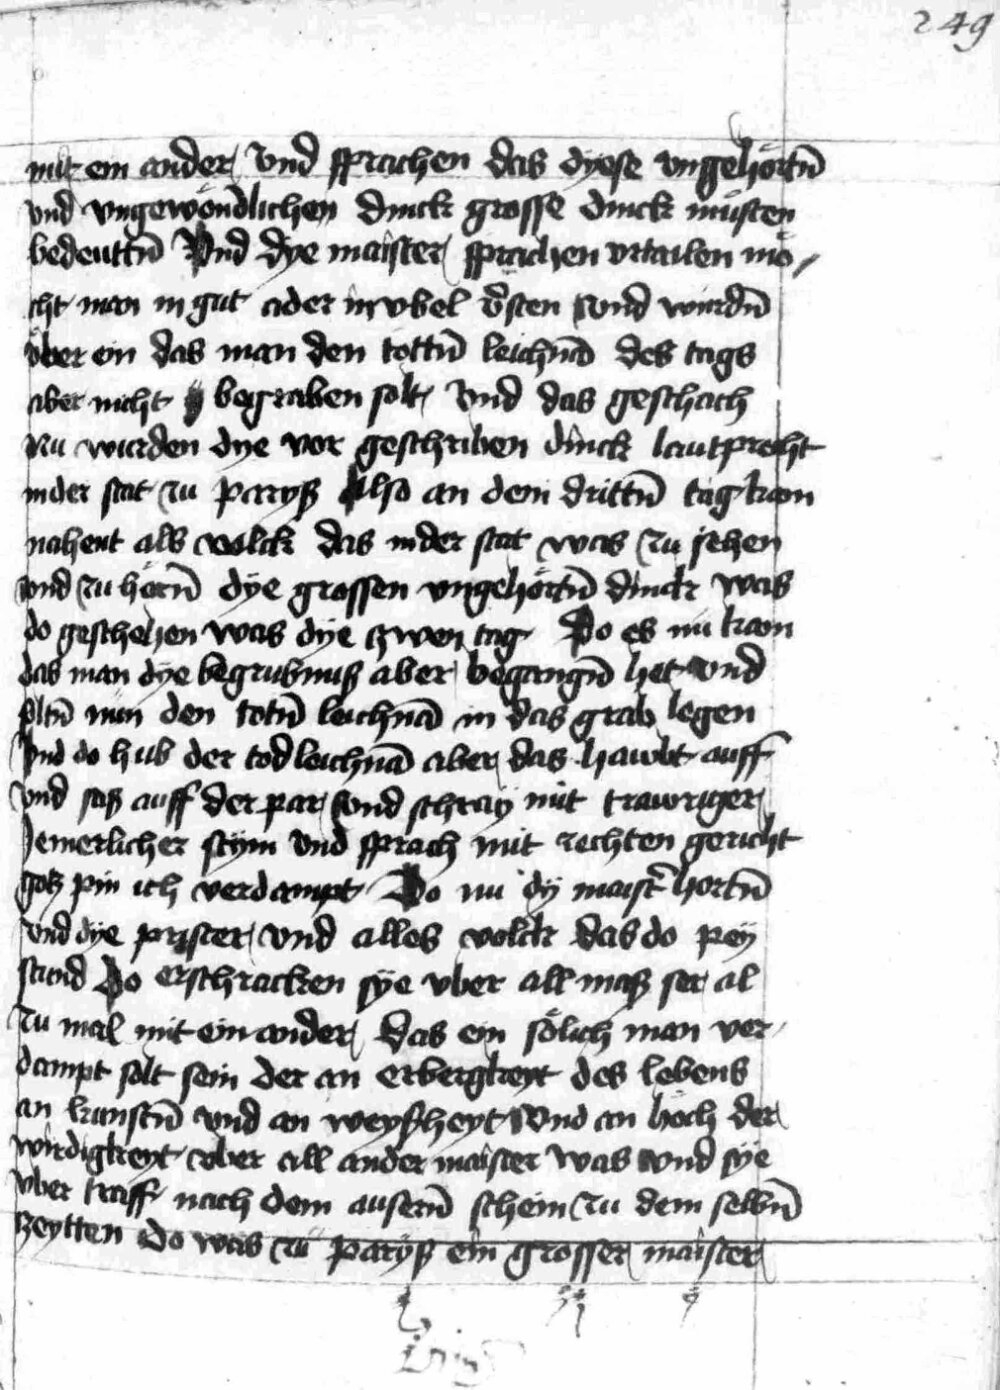 249
mit ein ander Vnd sprachen das dyese vngehörtn̄
vnd vngewöndlichen dinck grosse dinck müsten
bedeuttn̄ Vnd dye maister sprachen vrtailen mö-
cht man in gut ader in vbel v̄sten vnd wurdn̄
über ein das man den tottn̄ leichnā des tags
aber nicht begraben solt Vnd das geschach
Nu wurden dye vor geschriben dinck lautprecht
in der stat zu paryß Also an dem drittn̄ tag kam
nahent als volck das in der stat was zu sehen
vnd zu hörn̄ dye grossen vngehörtn̄ dinck was
do geschehen was dye zwen tag Do es nu kam
das man dye begrubnuß aber begangn̄ het vnd
soltn̄ nün den totn̄ leichnā in das grab legen
Vnd do hub der tod leichnā aber das hawbt auff
vnd saß auff der par vnd schray mit trawriger
Jemerlicher stym vnd sprach mit rechten gericht
gotz pin ich verdampt Do nu dy maist̄ hortn̄
vnd dye prister vnd alles volck das do pey
stund Do erschracken sye vber all maß ser al
zu mal mit ein ander Das ein sölich man ver-
dampt solt sein der an erbergkeyt des lebens
an kunstn̄ vnd an weyßheyt vnd an höch der
wirdigkeyt vber all ander maister was vnd sye
vber traff nach dem ausern̄ schein zu dem selbn̄
zeytten Do was zu paryß ein grosser maister